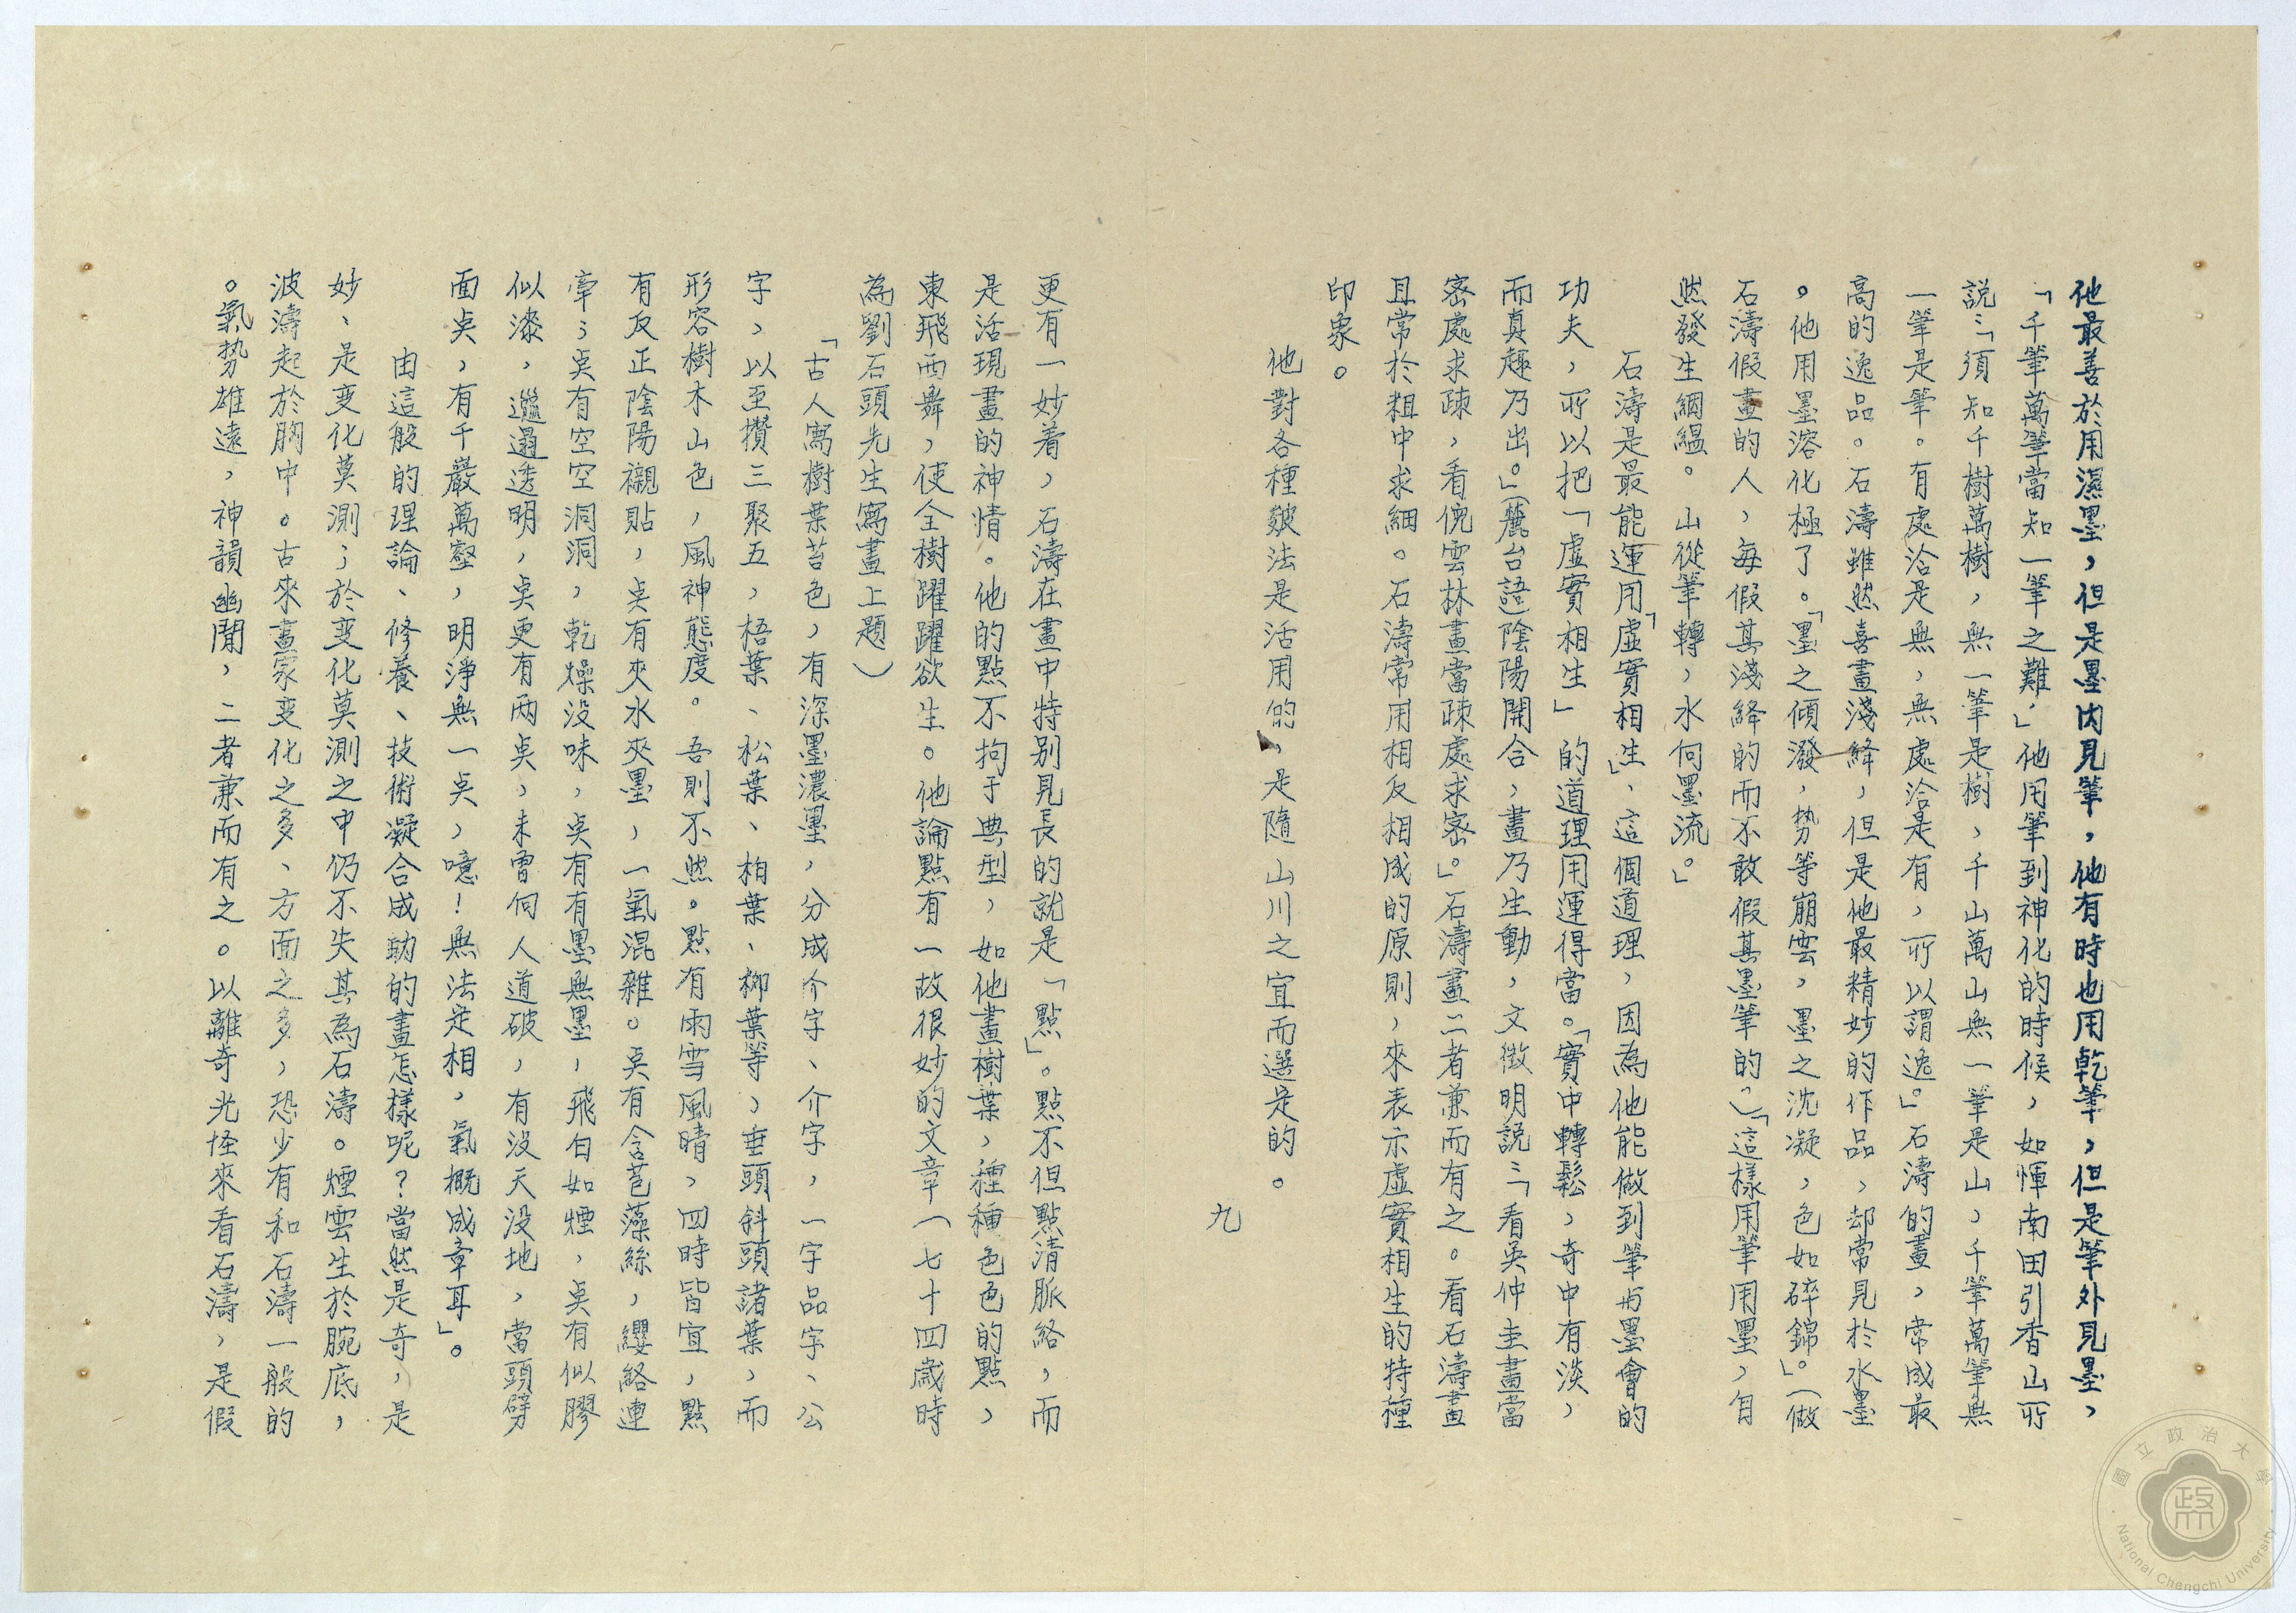 他最善於用濕墨，但是墨內見筆，他有時也用乾筆，但是筆外見墨，
「千筆萬筆當知一筆之難，」他用筆到神化的時候，如惲南田引香山所
說：「須知千樹萬樹，無一筆是樹，千山萬山無一筆是山，千筆萬筆無
一筆是筆。有處洽是無，無處洽是有，所以謂逸。」石濤的畫，常成最
高的逸品。石濤雖然喜畫淺絳，但是他最精妙的作品，却常見於水墨
。他用墨溶化極了。「墨之傾潑，势等崩雲，墨之沈凝，色如碎錦。」（做
石濤假畫的人，每假其淺絳的而不敢假其墨筆的。）「這樣用筆用墨，自
然發生絪緼。山從筆轉，水向墨流。」
石濤是最能運用「虛實相生」，這個道理，因為他能做到筆与墨會的
功夫，所以把「虛實相生」的道理用運得當。「實中轉鬆，奇中有淡，
而真趣乃出。」（麓台語）陰陽開合，畫乃生動，文徵明説：「看吳仲圭畫當
密處求疎，看倪雲林畫當疎處求密。」石濤畫二者兼而有之。看石濤畫
且常於粗中求細。石濤常用相反相成的原則，來表示虛實相生的特種
印象。
他對各種皴法是活用的，是隨山川之宜而選定的。
九
更有一妙着，石濤在畫中特别見長的就是「點」。點不但點清脈絡，而
是活現畫的神情。他的點不拘于典型，如他畫樹葉，種種色色的點，
東飛西舞，使全樹躍躍欲生。他論點有一故很妙的文章（七十四歲時
為劉石頭先生寫畫上題）
「古人寫樹葉苔色，有深墨濃墨，分成个字、介字，一字品字、公
字，以至攢三聚五，梧葉、松葉、柏葉、柳葉等，垂頭斜頭諸葉，而
形容樹木山色，風神態度。吾則不然。點有雨雪風晴，四時皆宜，點
有反正陰陽襯貼，奌有夾水夾墨，一氣混雜。奌有含苞藻絲，纓絡連
牽；奌有空空洞洞，乾燥没味，奌有有墨無墨，飛白如煙，奌有似膠
似漆，邋遢透明，奌更有两奌，未曾向人道破，有没天没地，當頭劈
面奌，有千巖萬壑，明淨無一奌，噫！無法定相，氣概成章耳」。
由這般的理論、修養、技術凝合成功的畫怎樣呢？當然是奇，是
妙、是变化莫測；於变化莫測之中仍不失其為石濤。煙雲生於腕底，
波濤起於胸中。古來畫家变化之多、方面之多，恐少有和石濤一般的
。氣势雄遠，神韻幽閒，二者兼而有之。以離奇光怪來看石濤，是假
國立政治大學
National Chengchi University